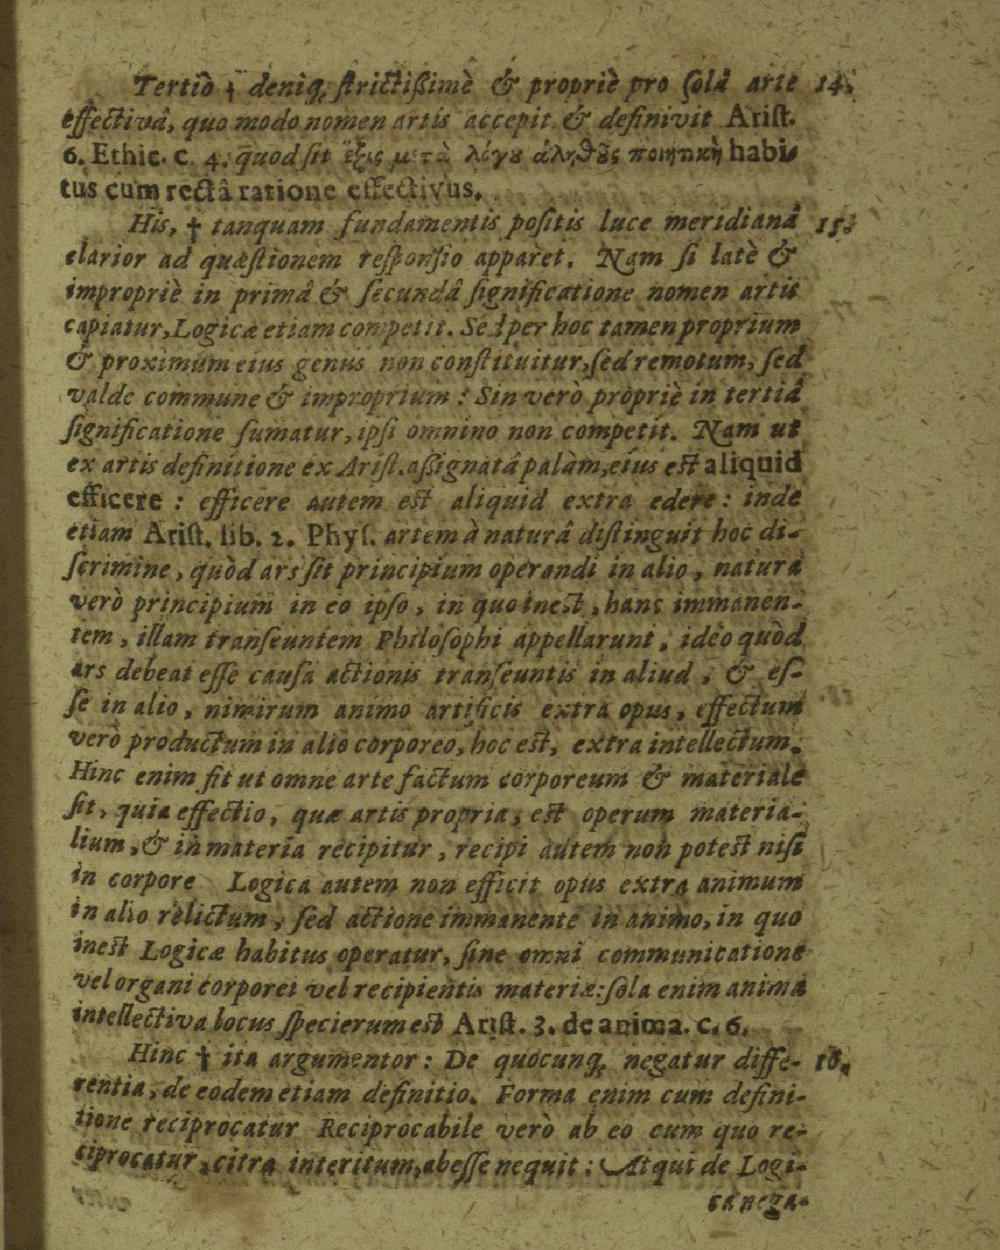 Tertiò † deniq; ſtrictiſſimè & propriè pro ſolâ arte 14.
effectivâ, quo modo nomen artis accepit & definivit Ariſt.
6. Ethic. c. 4. quod ſit ἕξις μετὰ λόγου ἀληθοῦς ποιητικὴ habi-
tus cum rectâ ratione effectivus.
His, † tanquam fundamentis poſitis luce meridianâ 15.
clarior ad quæſtionem reſponſio apparet. Nam ſi latè &
impropriè in primâ & ſecundâ ſignificatione nomen artis
capiatur, Logicæ etiam competit. Sed per hoc tamen proprium
& proximum eius genus non conſtituitur, ſed remotum, ſed
valde commune & improprium: Sin verò propriè in tertiâ
ſignificatione ſumatur, ipſi omnino non competit. Nam ut
ex artis definitione ex Ariſt. aſſignatâ palàm, eius eſt aliquid
efficere: efficere autem eſt aliquid extra edere: inde
etiam Ariſt. lib. 2. Phyſ. artem à naturâ diſtinguit hoc di-
ſcrimine, quòd ars ſit principium operandi in alio, natura
verò principium in eo ipſo, in quo ineſt, hanc immanen-
tem, illam tranſeuntem Philoſophi appellarunt, ideo quòd
ars debeat eſſe cauſa actionis tranſeuntis in aliud, & eſ-
ſe in alio, nimirum animo artificis extra opus, effectum
verò productum in alio corporeo, hoc eſt, extra intellectum.
Hinc enim fit ut omne arte factum corporeum & materiale
ſit, quia effectio, quæ artis propria, eſt operum materia-
lium, & in materia recipitur, recipi autem non poteſt niſi
in corpore Logica autem non efficit opus extra animum
in alio relictum, ſed actione immanente in animo, in quo
ineſt Logicæ habitus operatur, ſine omni communicatione
vel organi corporei vel recipientis materiæ: ſola enim anima
intellectiva locus ſpecierum eſt Ariſt. 3. de anima. c. 6.
Hinc † ita argumentor: De quocunq; negatur diffe- 16.
rentia, de eodem etiam definitio. Forma enim cum defini-
tione reciprocatur Reciprocabile verò ab eo cum quo re-
ciprocatur, citra interitum, abeſſe nequit: Atqui de Logi-
ca nega-